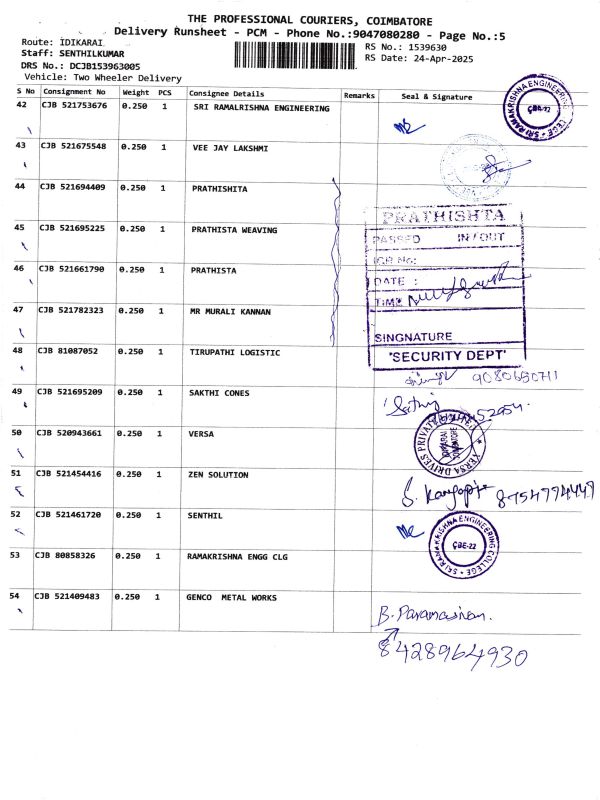 THE PROFESSIONAL COURIERS, COIMBATORE
Delivery Runsheet - PCM - Phone No.:9047080280 - Page No.:5
Route: IDIKARAI
RS No.: 1539630
Staff: SENTHILKUMAR
RS Date: 24-Apr-2025
DRS No.: DCJB153963005
Vehicle: Two Wheeler Delivery
S No Consignment No Weight PCS Consignee Details Remarks Seal & Signature
42 CJB 521753676 0.250 1 SRI RAMALRISHNA ENGINEERING
CBE-22
43 CJB 521675548 0.250 1 VEE JAY LAKSHMI
44 CJB 521694409 0.250 1 PRATHISHITA
PRATHISHTA
45 CJB 521695225 0.250 1 PRATHISTA WEAVING
PASSED IN/OUT
46 CJB 521661790 0.250 1 PRATHISTA
DATE :
TIME
47 CJB 521782323 0.250 1 MR MURALI KANNAN
SINGNATURE
48 CJB 81087052 0.250 1 TIRUPATHI LOGISTIC
'SECURITY DEPT'
49 CJB 521695209 0.250 1 SAKTHI CONES
50 CJB 520943661 0.250 1 VERSA
VERSA DRIVES PRIVATE
51 CJB 521454416 0.250 1 ZEN SOLUTION
8754774449
52 CJB 521461720 0.250 1 SENTHIL
SRI RAMAKRISHNA ENGINEERING COLLEGE
CBE-22
53 CJB 80858326 0.250 1 RAMAKRISHNA ENGG CLG
54 CJB 521409483 0.250 1 GENCO METAL WORKS
B. Paramasivan.
8428964930